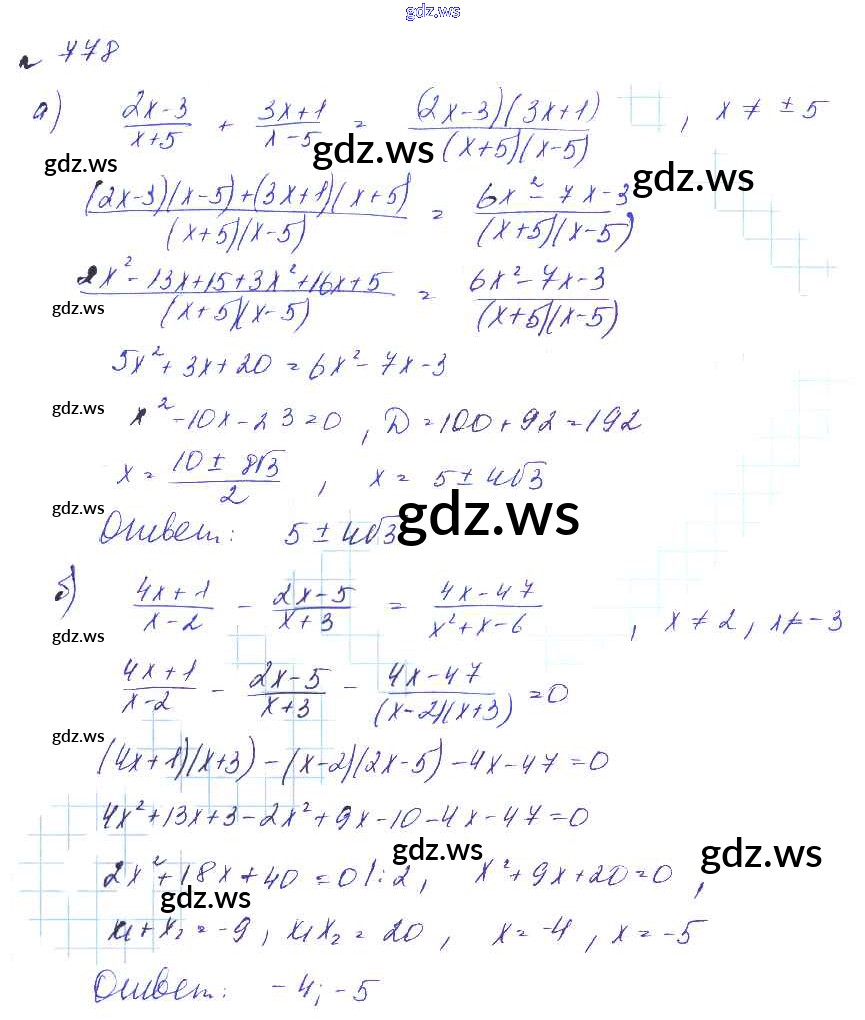 gdz.ws
n 778
а) (2x-3)/(x+5) + (3x+1)/(x-5) = (2x-3)(3x+1)/(x+5)(x-5) , x ≠ ±5
gdz.ws gdz.ws gdz.ws
((2x-3)(x-5)+(3x+1)(x+5))/((x+5)(x-5)) = (6x²-7x-3)/((x+5)(x-5))
(2x²-13x+15+3x²+16x+5)/((x+5)(x-5)) = (6x²-7x-3)/((x+5)(x-5))
gdz.ws
5x²+3x+20=6x²-7x-3
gdz.ws x²-10x-23=0, D=100+92=192
x = (10±8√3)/2 , x = 5±4√3
gdz.ws gdz.ws
Ответ: 5±4√3
б) (4x+1)/(x-2) - (2x-5)/(x+3) = (4x-47)/(x²+x-6) , x≠2, x≠-3
gdz.ws
(4x+1)/(x-2) - (2x-5)/(x+3) - (4x-47)/((x-2)(x+3)) =0
gdz.ws
(4x+1)(x+3)-(x-2)(2x-5)-4x-47=0
4x²+13x+3-2x²+9x-10-4x-47=0
gdz.ws gdz.ws
2x²+18x+40=0 |:2, x²+9x+20=0,
gdz.ws
x₁+x₂=-9, x₁x₂=20, x=-4, x=-5
Ответ: -4; -5